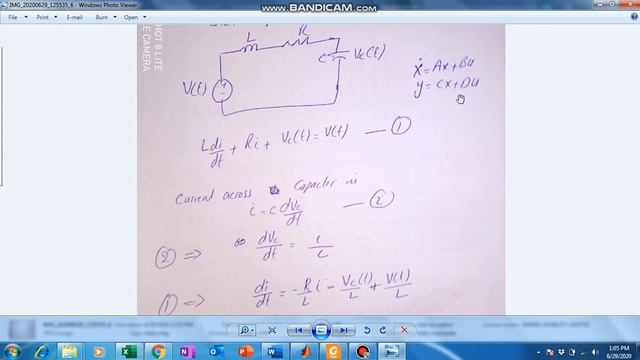 IMG_20200629_125535_6 - Windows Photo Viewer
www.BANDICAM.com
File Print E-mail Burn Open
SHOT 8 LITE
CAMERA
L R
C Vc(t)
V(t)
ẋ = Ax + Bu
y = Cx + Du
L di/dt + Ri + Vc(t) = V(t) — ①
Current across Capactor is
i = C dVc/dt — ②
② ⇒ dVc/dt = i/C
① ⇒ di/dt = -R/L i - Vc(t)/L + V(t)/L
1:05 PM
6/29/2020